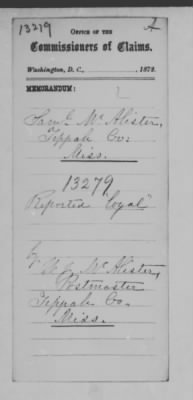 13279
OFFICE OF THE
Commissioners of Claims.
Washington, D. C., , 1873.
MEMORANDUM:
Saml Mc Alister,
Tippah Co:
Miss.
13279
Reported "loyal"
Mc Alister,
Postmaster
Tippah Co.
Miss.